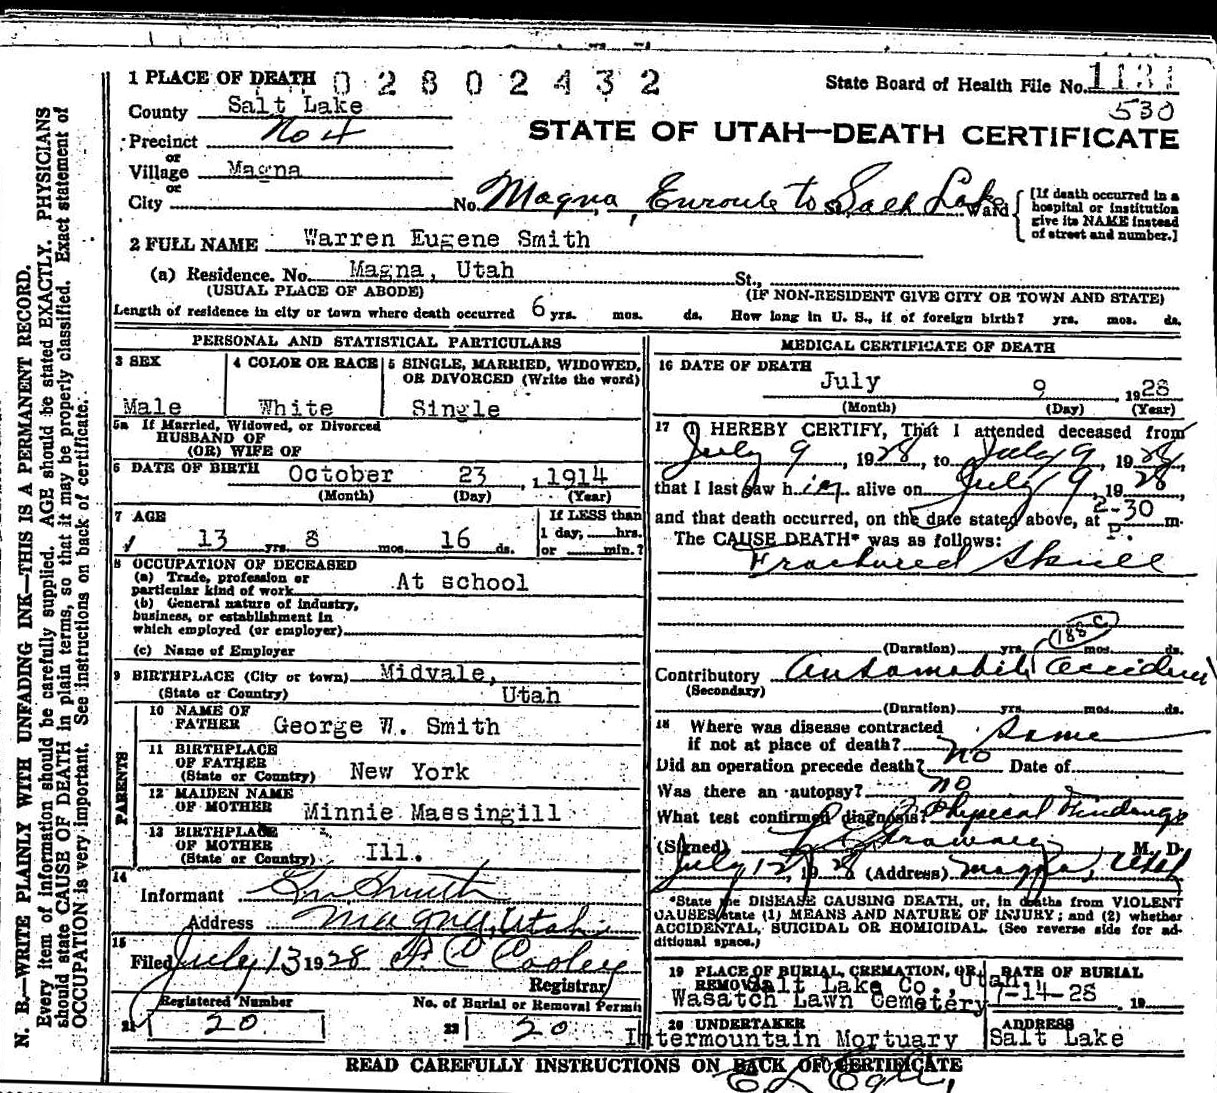 1 PLACE OF DEATH 0 2 8 0 2 4 3 2
State Board of Health File No. 1131
530
County Salt Lake
STATE OF UTAH—DEATH CERTIFICATE
Precinct No 4
or
Village Magna
or
City No. Magna, Enroute to Salt Lake St., Ward
[If death occurred in a hospital or institution give its NAME instead of street and number.]
2 FULL NAME Warren Eugene Smith
(a) Residence. No. Magna, Utah St.,
(USUAL PLACE OF ABODE) (IF NON-RESIDENT GIVE CITY OR TOWN AND STATE)
Length of residence in city or town where death occurred 6 yrs. mos. ds. How long in U. S., if of foreign birth? yrs. mos. ds.
PERSONAL AND STATISTICAL PARTICULARS
3 SEX
Male
4 COLOR OR RACE
White
5 SINGLE, MARRIED, WIDOWED,
OR DIVORCED (Write the word)
Single
5a If Married, Widowed, or Divorced
HUSBAND OF
(OR) WIFE OF
6 DATE OF BIRTH October 23, 1914
(Month) (Day) (Year)
7 AGE
13 yrs 8 mos 16 ds.
If LESS than
1 day, hrs.
or min.?
8 OCCUPATION OF DECEASED
(a) Trade, profession or
particular kind of work At school
(b) General nature of industry,
business, or establishment in
which employed (or employer)
(c) Name of Employer
9 BIRTHPLACE (City or town) Midvale,
(State or Country) Utah
PARENTS
10 NAME OF
FATHER George W. Smith
11 BIRTHPLACE
OF FATHER
(State or Country) New York
12 MAIDEN NAME
OF MOTHER Minnie Massingill
13 BIRTHPLACE
OF MOTHER
(State or Country) Ill.
14
Informant Smith
Address Magna, Utah
15
Filed July 13 1928 F. C. Cooley
Registrar
Registered Number No. of Burial or Removal Permit
21 20 22 20
MEDICAL CERTIFICATE OF DEATH
16 DATE OF DEATH
July 9, 1928
(Month) (Day) (Year)
17 (I) HEREBY CERTIFY, That I attended deceased from
July 9, 1928, to July 9, 1928,
that I last saw him alive on July 9, 1928,
and that death occurred, on the date stated above, at 2-30 P. m.
The CAUSE DEATH* was as follows:
Fractured Skull
188 c
(Duration) yrs. mos. ds.
Contributory Automobile Accident
(Secondary)
(Duration) yrs. mos. ds.
18 Where was disease contracted
if not at place of death? Same
Did an operation precede death? no Date of
Was there an autopsy? no
What test confirmed diagnosis? Physical Findings
(Signed) M. D.
July 12, 1928 (Address) Magna, Utah
*State the DISEASE CAUSING DEATH, or, in deaths from VIOLENT
CAUSES, state (1) MEANS AND NATURE OF INJURY; and (2) whether
ACCIDENTAL, SUICIDAL OR HOMICIDAL. (See reverse side for ad-
ditional space.)
19 PLACE OF BURIAL, CREMATION, OR
REMOVAL Salt Lake Co., Utah
Wasatch Lawn Cemetery
DATE OF BURIAL
7-14-28 19
20 UNDERTAKER
Intermountain Mortuary
ADDRESS
Salt Lake
READ CAREFULLY INSTRUCTIONS ON BACK OF CERTIFICATE
N. B.—WRITE PLAINLY WITH UNFADING INK—THIS IS A PERMANENT RECORD.
Every item of information should be carefully supplied. AGE should be stated EXACTLY. PHYSICIANS
should state CAUSE OF DEATH in plain terms, so that it may be properly classified. Exact statement of
OCCUPATION is very important. See instructions on back of certificate.